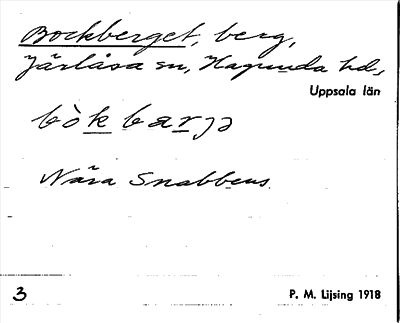 Bockberget, berg,
Järlåsa sn, Hagunda hd,
Uppsala län
bò k bærjə
Nära Snabbens
3
P. M. Lijsing 1918